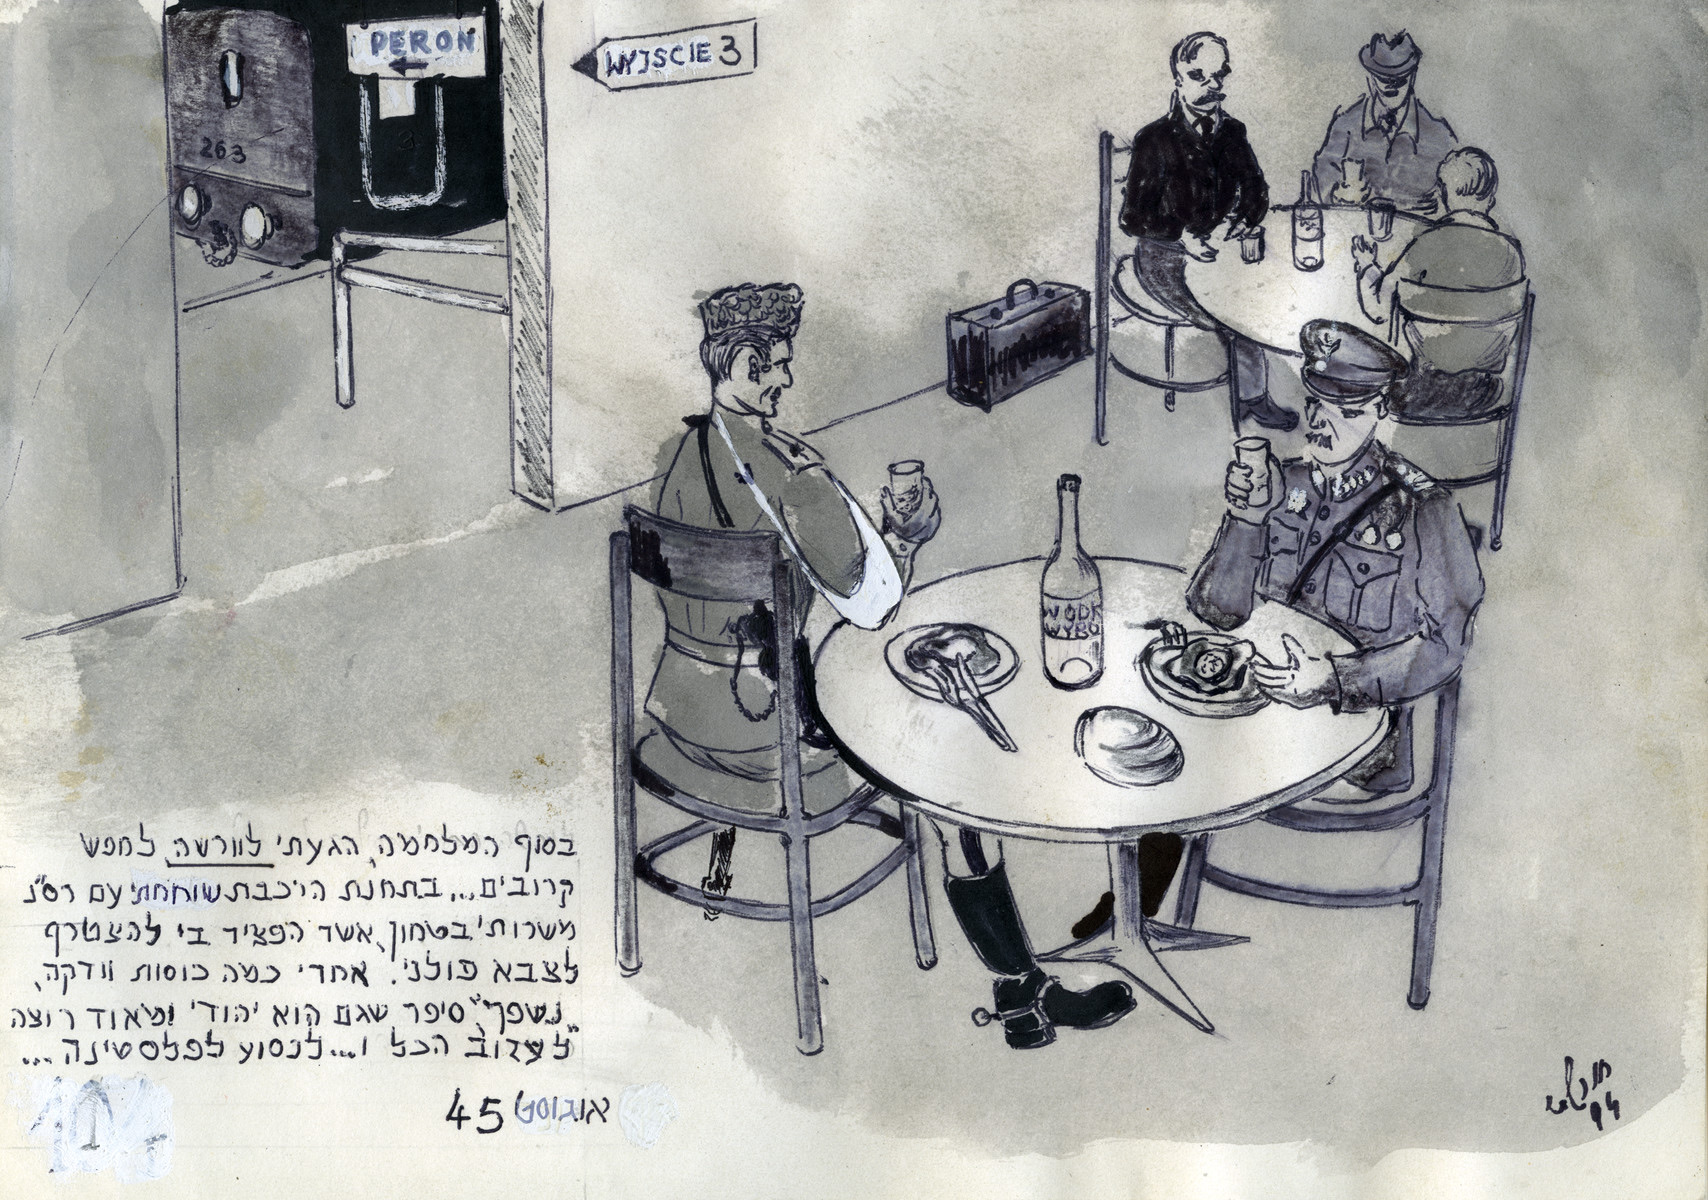 PERON
WYJSCIE 3
263
WODK
WYBO
בסוף המלחמה, הגעתי לוורשה, לחפש
קרובים... בתחנת הרכבת שוחחתי עם רס"נ
משרותי בטחון, אשר הפציר בי להצטרף
לצבא פולני. אחרי כמה כוסות וודקה,
"נשפך" סיפר שגם הוא יהודי ומאוד רוצה
"לעזוב הכל ו... לנסוע לפלסטינה...
אוגוסט 45
94